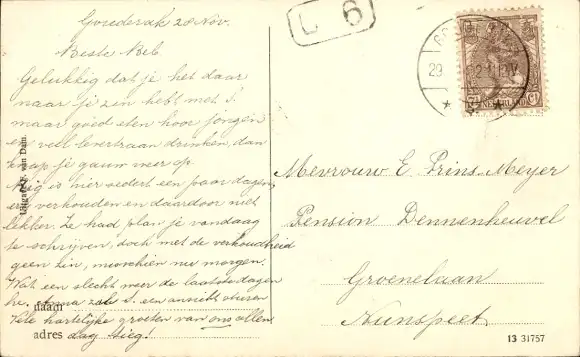 Gouderak 28 Nov.
Beste Beb
Gelukkig dat je het daar
naar je zin hebt met S.
maar goed eten hoor jongen
en veel levertraan drinken, dan
knap je gauw weer op
is hier sedert een paar dagen
verkouden en daardoor niet
lekker. Ze had plan je vandaag
te schrijven, doch met de verkoudheid
geen zin, misschien nu morgen.
Wat een slecht weer de laatste dagen
hè. zal S. een ansicht sturen
Vele hartelijke groeten van ons allen
dag
naam
adres
Uitgave v. van Dam.
L 6
29
NEDERLAND
Mevrouw E Prins-Meyer
Pension Dennenheuvel
Groenelaan
Nunspeet
13 31757